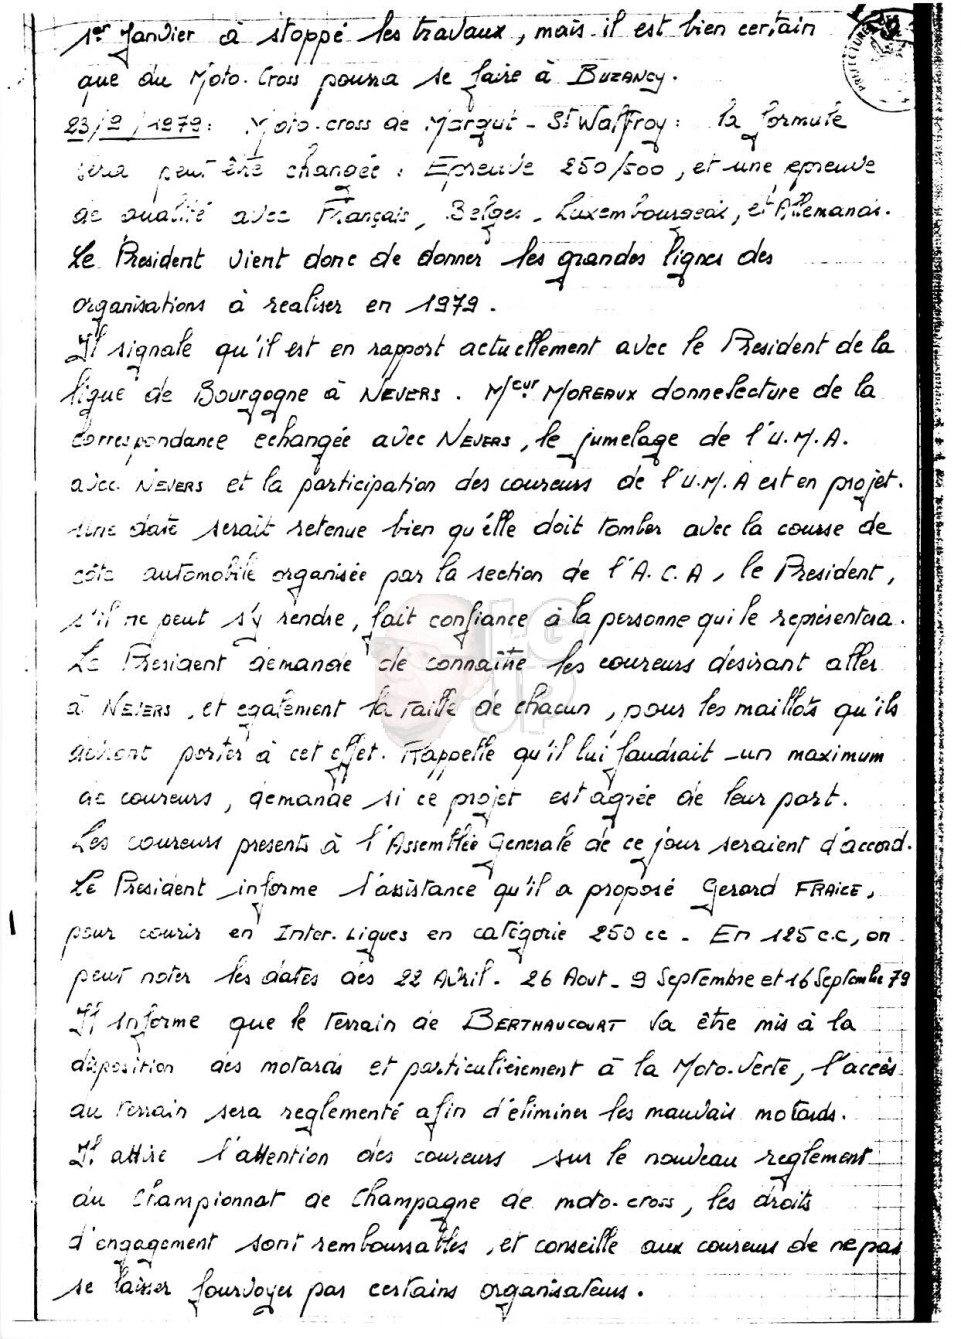 1er Janvier à stoppé les travaux, mais il est bien certain
que du Moto-Cross pourra se faire à BUZANCY.
23/9/1979: Moto-cross de Margut - St Walfroy: la formule
sera peut être changée: Epreuve 250/500, et une epreuve
de qualité avec Français, Belges, Luxembourgeois, et Allemands.
Le President vient donc de donner les grandes lignes des
organisations à realiser en 1979.
Il signale qu'il est en rapport actuellement avec le President de la
ligue de Bourgogne à NEVERS. Mieur MOREAUX donne lecture de la
correspondance echangée avec NEVERS, le jumelage de l'U.M.A.
avec NEVERS et la participation des coureurs de l'U.M.A est en projet.
Une date serait retenue bien qu'elle doit tomber avec la course de
côte automobile organisée par la section de l'A.C.A, le President,
s'il ne peut s'y rendre, fait confiance à la personne qui le représentera.
Le President demande de connaître les coureurs desirant aller
à NEVERS, et egalement la taille de chacun, pour les maillots qu'ils
devront porter à cet effet. Rappelle qu'il lui faudrait un maximum
de coureurs, demande si ce projet est agrée de leur part.
Les coureurs presents à l'Assemblée Generale de ce jour seraient d'accord.
Le President informe l'assistance qu'il a proposé Gerard FRAICE,
pour courir en Inter-Ligues en catégorie 250 cc - En 125 c.c, on
peut noter les dates des 22 Avril - 26 Aout - 9 Septembre et 16 Septembre 79
Il informe que le terrain de BERTHAUCOURT va être mis à la
disposition des motards et particulièrement à la Moto-Verte, l'accès
au terrain sera reglementé afin d'éliminer les mauvais motards.
Il attire l'attention des coureurs sur le nouveau reglement
du Championnat de Champagne de moto-cross, les droits
d'engagement sont remboursables, et conseille aux coureurs de ne pas
se laisser fourvoyer par certains organisateurs.